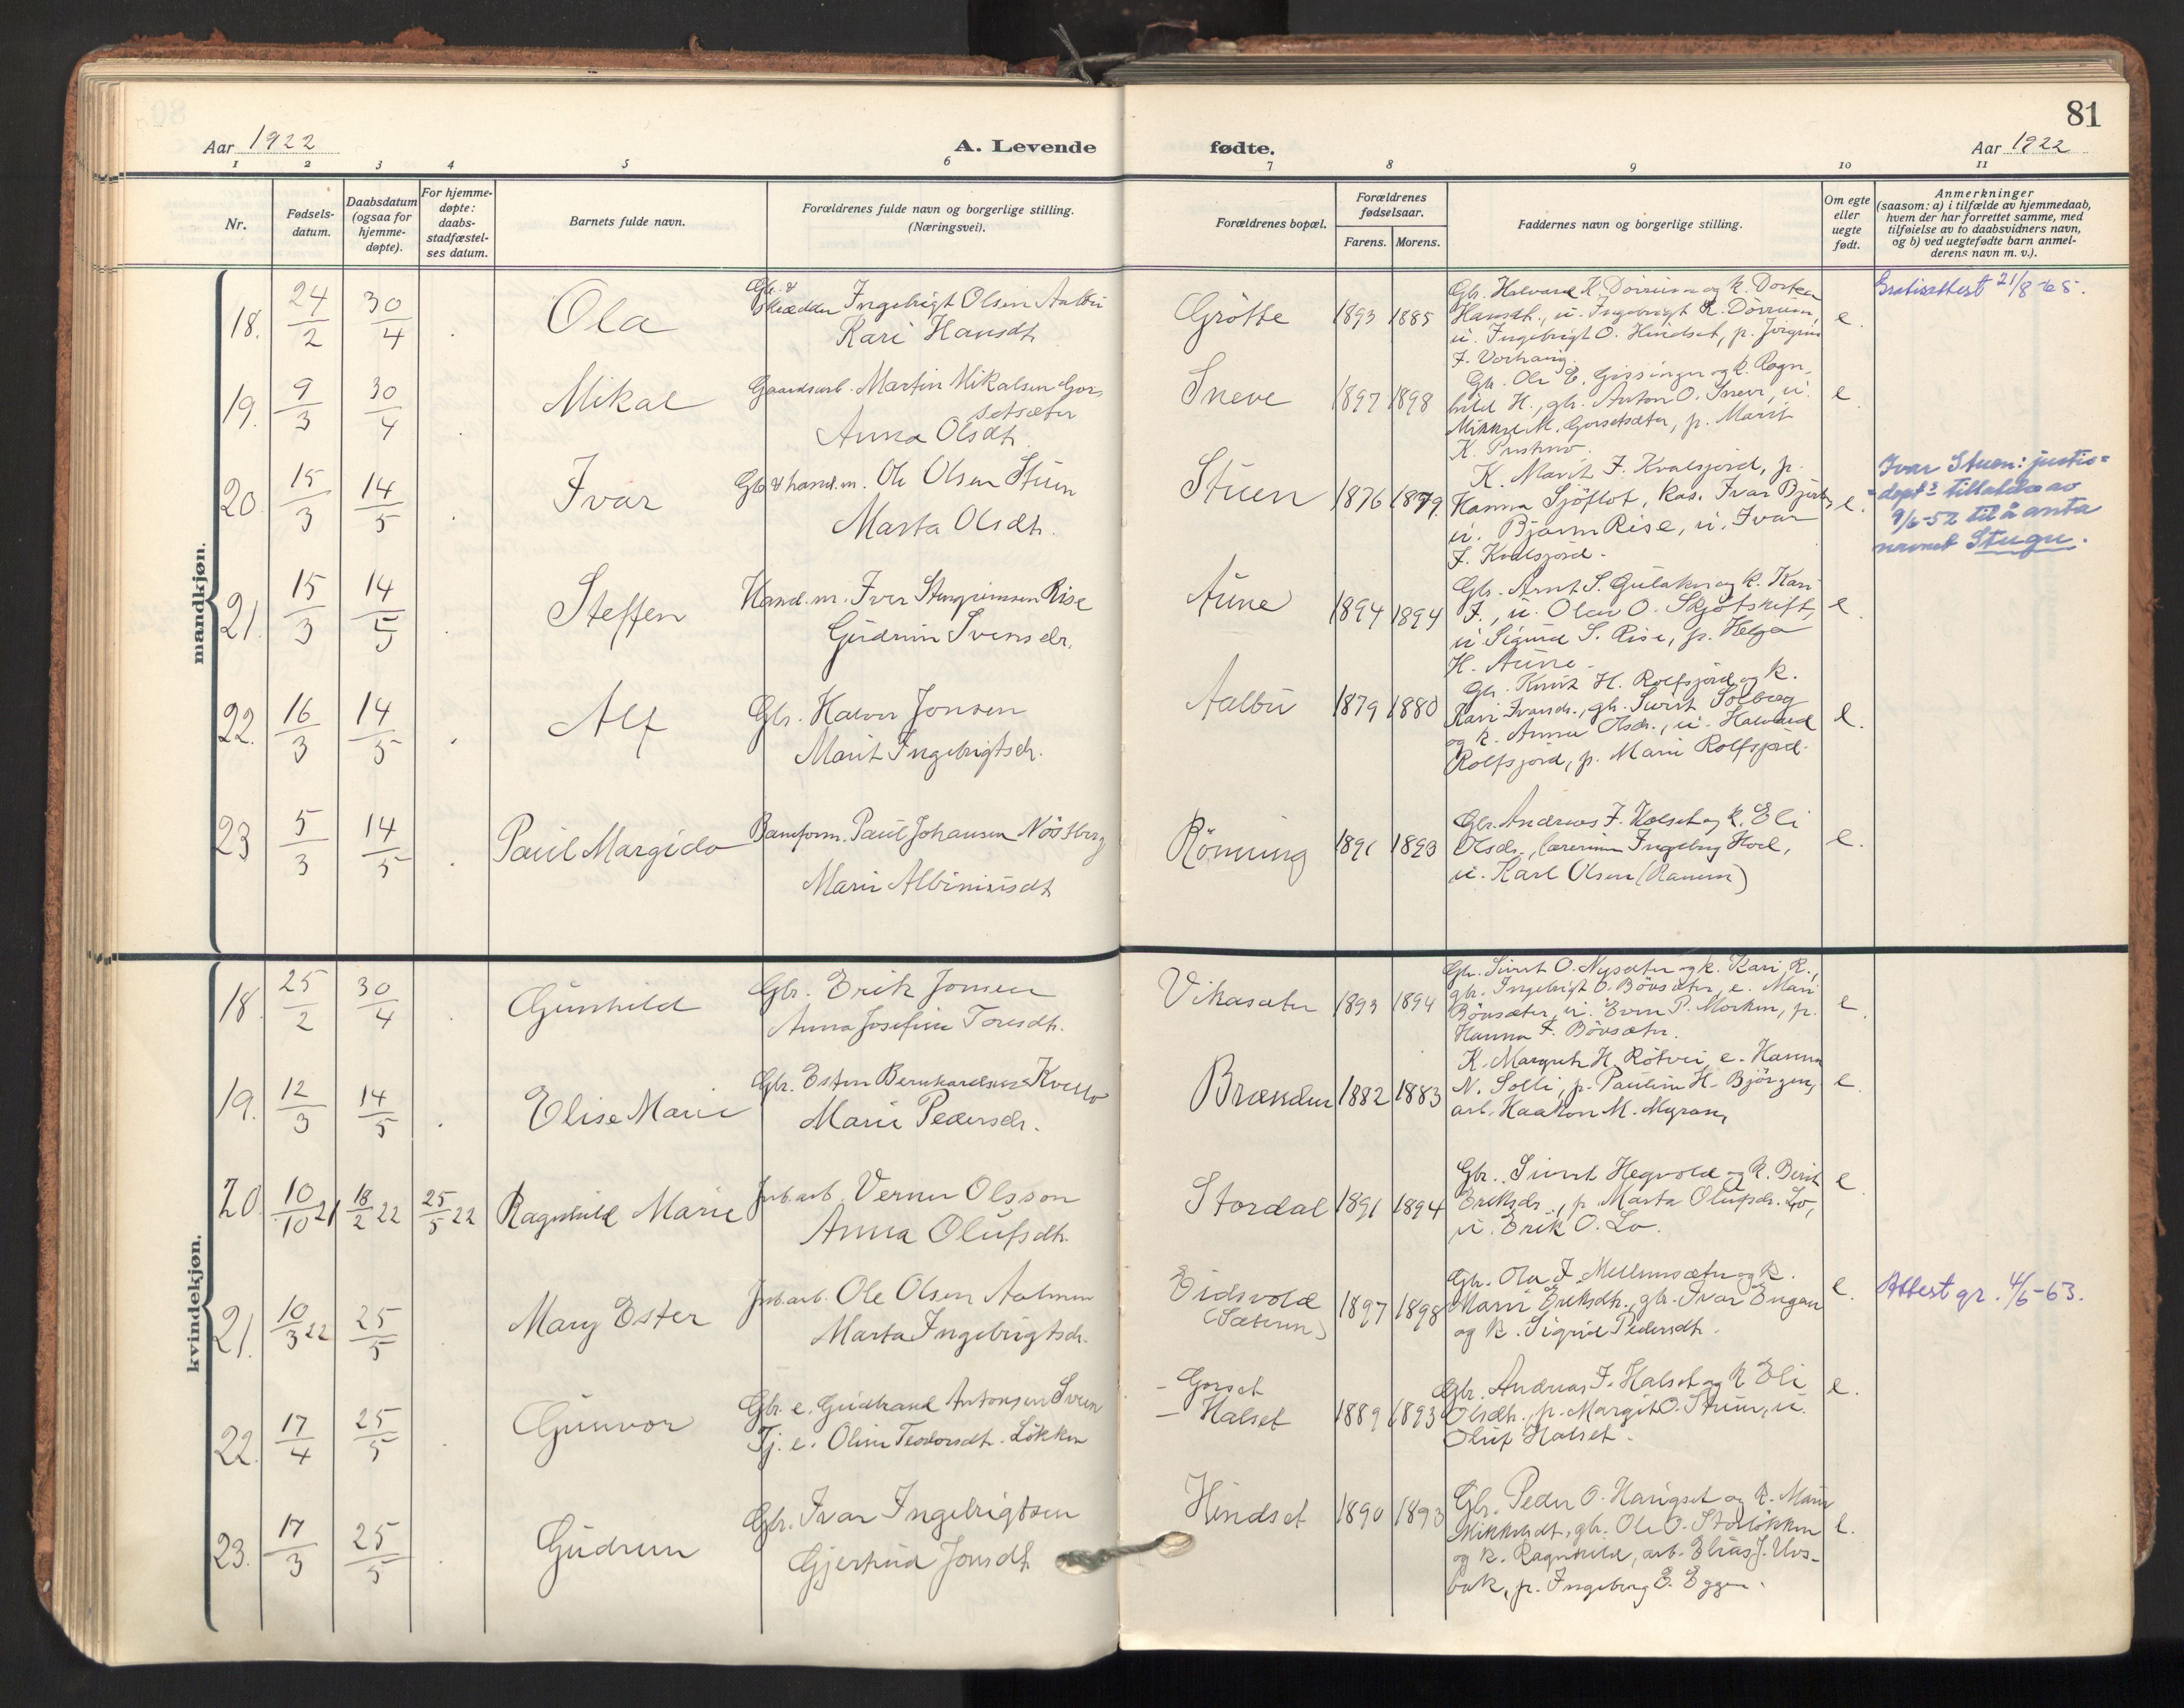 81
Aar 1922
A. Levende
fødte.
Aar 1922
1 2 3 4 5 6 7 8 9 10 11
Nr.
Fødsels-
datum.
Daabsdatum
(ogsaa for
hjemme-
døpte).
For hjemme-
døpte:
daabs-
stadfæstel-
ses datum.
Barnets fulde navn.
Forældrenes fulde navn og borgerlige stilling.
(Næringsvei).
Forældrenes bopæl.
Forældrenes
fødselsaar.
Farens. Morens.
Faddernes navn og borgerlige stilling.
Om egte
eller
uegte
født.
Anmerkninger
(saasom: a) i tilfælde av hjemmedaab,
hvem der har forrettet samme, med
tilføielse av to daabsvidners navn,
og b) ved uegtefødte barn anmel-
derens navn m. v.).
mandkjøn.
18. 24/2 30/4 . Ola
Gbr. &
Skrædder Ingebrigt Olsen Aalbu
Kari Hansdt.
Grötte 1893 1885
Gbr. Halvard K. Dörrum og k. Dorthea
Hansdt., u. Ingebrigt K. Dörrum,
u. Ingebrigt O. Hindset, p. Jörgine
F. Vorhaug.
e.
Gratisattest 21/8-65.
19. 9/3 30/4 . Mikal
Gaardsarb. Martin Mikalsen Gor-
setsæter
Anna Olsdt.
Sneve 1897 1898
Gbr. Ole E. Gissinger og k. Ragn-
hild H., gbr. Anton O. Sneve, u.
Mikkel M. Gorsetsæter, p. Marit
K.
e.
20. 15/3 14/5 . Ivar
Gbr & hand.m. Ole Olsen Stuen
Marta Olsdt.
Stuen 1876 1879.
K. Marit F. Kvalsjord, p.
Hanna Sjöflot, kas. Ivar
u. Bjarne Rise, u. Ivar
F. Kvalsjord.
e.
Ivar Stuen: justis-
dept's tillatelse av
9/6-52 til å anta
navnet Stugu.
21. 15/3 14/5 . Steffen
Hand.m. Iver Steingrimsen Rise
Gudrun Svensdr.
Aune 1894 1894
Gbr. Arnt S. Gulaker og k. Kari
F., u. Olav O. Skjötskift,
u. Sigurd S. Rise, p. Helga
H. Aune.
e.
22. 16/3 14/5 . Alf
Gbr. Halvor Jonsen
Marit Ingebrigtsdr.
Aalbu 1879 1880
Gbr. Knut H. Rolfsjord og k.
Kari Ivarsdr., gbr. Sivert Solberg
og k. Anne Olsdr., u. Halvard
Rolfsjord, p. Marie Rolfsjord.
e.
23 5/3 14/5 . Paul Margido
Baneform. Paul Johansen Nöstberg
Marie Albinusdt
Rönning 1891 1893
Gbr. Andreas F. Halset og k. Eli
Olsdr., lærerinne Ingeborg Hoel,
u. Karl Olsen (Ramm)
e.
kvindekjøn.
18. 25/2 30/4 . Gunhild
Gbr. Erik Jonsen
Anna Josefine Toresdt.
Vikasæter 1893 1894
Gbr. Sivert O. Nysæter og k. Kari R.,
gbr. Ingebrigt O. Bövsæter, e. Mari
Bövsæter, u. Even P. Morken, p.
Hanna F. Bövsæter.
e.
19. 12/3 14/5 . Elise Marie
Gbr. Esten Bernhardsen Kvello
Marie Pedersdr.
Brænden 1882 1883
K. Margrete H. Rötvei, e. Hanna
N. Solli, p. Pauline H. Björgen,
arb. Haakon M. Myran,
e.
20. 10/10 21 18/2 22 25/5 22 Ragnhild Marie
Jnb.arb. Verner Olsson
Anna Olufsdt.
Stordal 1891 1894
Gbr. Sivert Hegvold og k. Berit
Eriksdr., p. Marta Olufsdr. Lo,
u. Erik O. Lo.
e.
21. 10/3 22 25/5 Mary Ester
Jnb.arb. Ole Olsen Aalmen
Marta Ingebrigtsdr.
Eidsvold
(Sæteren) 1897 1898
Gbr. Ola F. Mellemsæter og k.
Marit Eriksdt., gbr. Ivar Engan
og k. Sigrid Pedersdt.
e.
Attest gr. 4/6-63.
22. 17/4 25/5 . Gunvor
Gbr. e. Gudbrand Antonsen Sveen
Tj. e. Oline Teodorsdt. Lökken
- Gorset
- Halset 1889 1893
Gbr. Andreas F. Halset og k Eli
Olsdt., p. Margit O. Stuen, u.
Oluf Halset.
e.
23. 17/3 25/5 . Gudrun
Gbr. Ivar Ingebrigtsen
Gjertrud Jonsdt
Hindset 1890 1893
Gbr. Peder O. Haugset og k. Marie
Mikkelsdt., gbr. Ole O. Storlökken
og k. Ragnhild, arb. Elias J. Uvs-
bak, p. Ingeborg E. Eggen.
e.